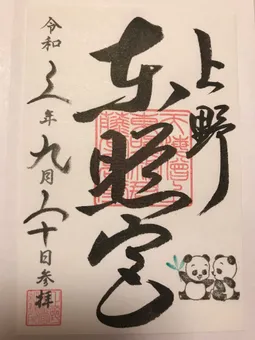 上野
東照宮
令和元年九月二十日参拝